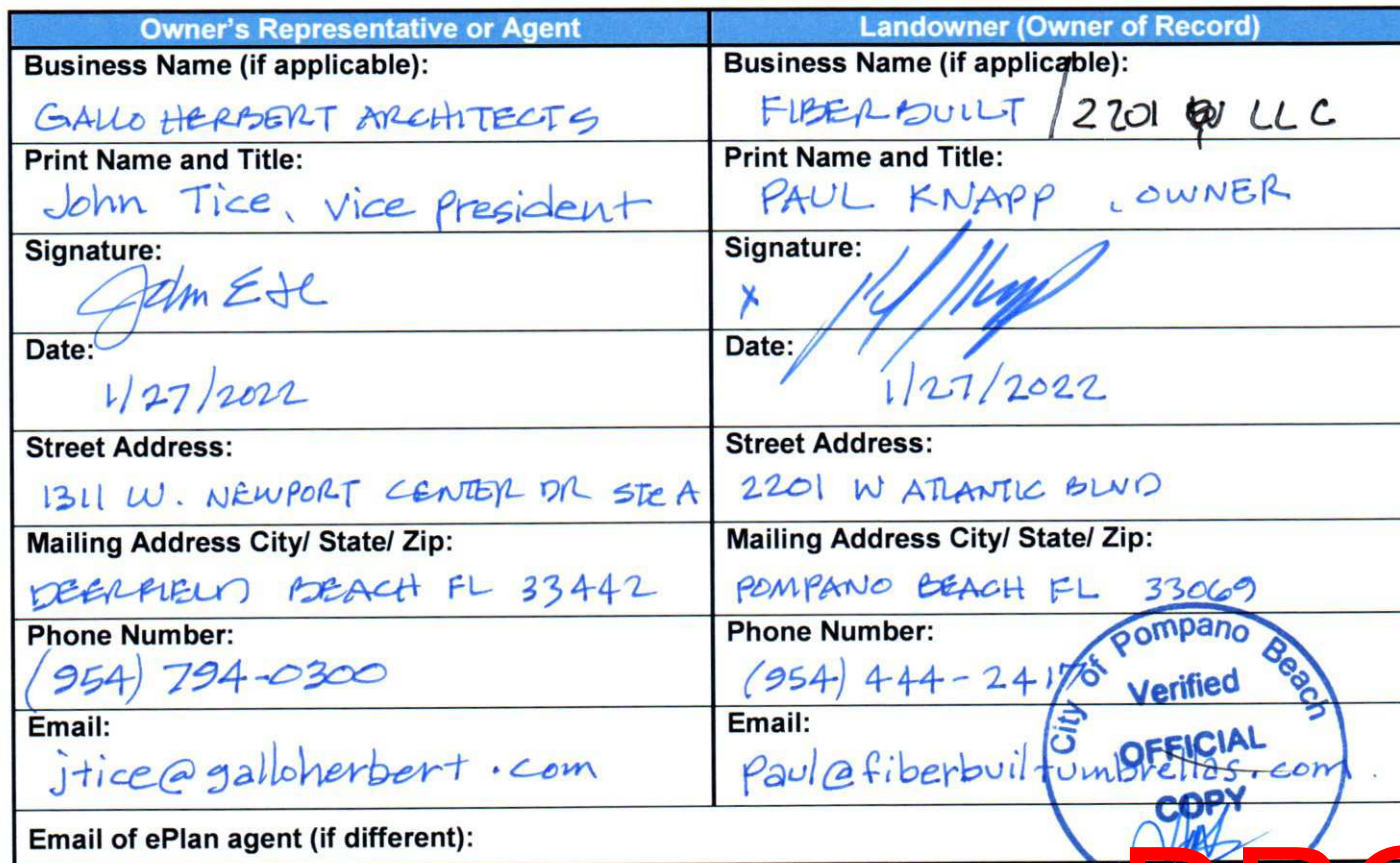 Owner's Representative or Agent
Landowner (Owner of Record)
Business Name (if applicable):
GALLO HERBERT ARCHITECTS
Business Name (if applicable):
FIBERBUILT / 2201 LLC
Print Name and Title:
John Tice, Vice President
Print Name and Title:
PAUL KNAPP, OWNER
Signature:
Signature:
x
Date:
1/27/2022
Date:
1/27/2022
Street Address:
1311 W. NEWPORT CENTER DR STE A
Street Address:
2201 W ATLANTIC BLVD
Mailing Address City/ State/ Zip:
DEERFIELD BEACH FL 33442
Mailing Address City/ State/ Zip:
POMPANO BEACH FL 33069
Phone Number:
(954) 794-0300
Phone Number:
(954) 444-2417
Email:
jtice@galloherbert.com
Email:
Paul@fiberbuiltumbrellas.com
Email of ePlan agent (if different):
City of Pompano Beach
Verified
OFFICIAL
COPY